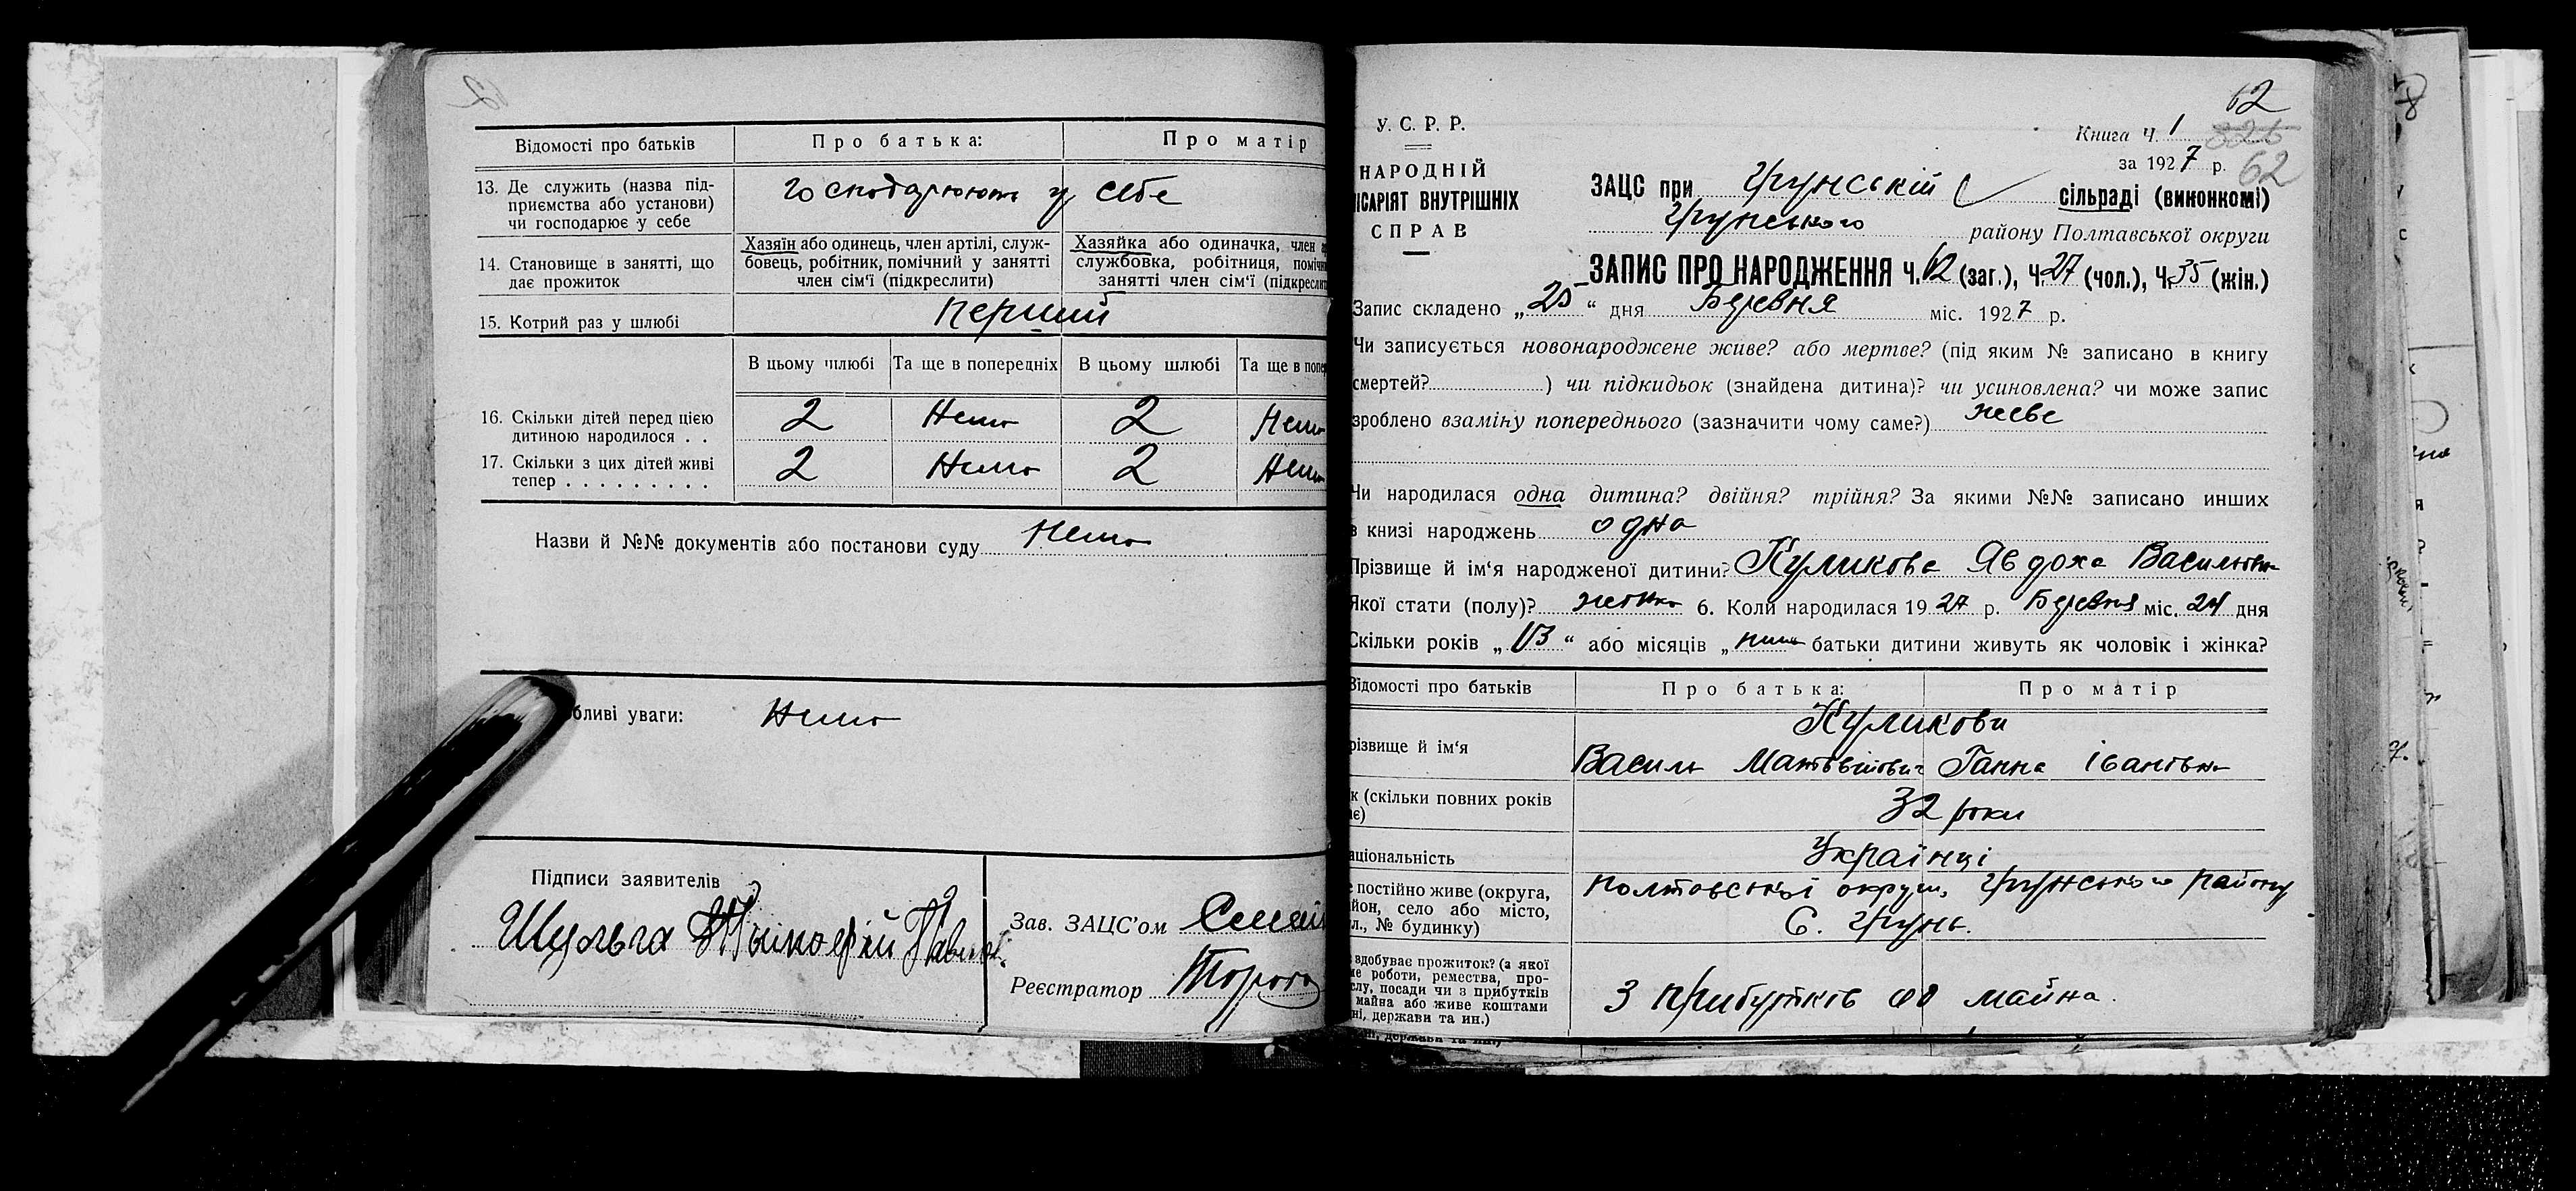 Відомості про батьків
Про батька:
Про матір
13. Де служить (назва під-
приємства або установи)
чи господарює у себе
господарюють у себе
14. Становище в занятті, що
дає прожиток
Хазяїн або одинець, член артілі, служ-
бовець, робітник, помічний у занятті
член сім'ї (підкреслити)
Хазяйка або одиначка, член
службовка, робітниця,
занятті член сім'ї
15. Котрий раз у шлюбі
перший
В цьому шлюбі
Та ще в попередніх
В цьому шлюбі
Та ще в
16. Скільки дітей перед цією
дитиною народилося . .
2 Нема 2 Нема
17. Скільки з цих дітей живі
тепер . . . . . . . . .
2 Нема 2 Нема
Назви й №№ документів або постанови суду Нема
уваги: Нема
Підписи заявителів
Шульга
Зав. ЗАЦС'ом
Реєстратор
62
У. С. Р. Р.
НАРОДНІЙ
ВНУТРІШНІХ
СПРАВ
Книга Ч. 1
за 1927 р.
62
ЗАЦС при Грунській сільраді (виконкомі)
Грунського району Полтавської округи
ЗАПИС ПРО НАРОДЖЕННЯ Ч. 62 (заг.), Ч. 27 (чол.), Ч. 35 (жін.)
Запис складено „25“ дня Березня міс. 1927 р.
Чи записується новонароджене живе? або мертве? (під яким № записано в книгу
смертей? ) чи підкидьок (знайдена дитина)? чи усиновлена? чи може запис
зроблено взаміну попереднього (зазначити чому саме?) живе
Чи народилася одна дитина? двійня? трійня? За якими №№ записано инших
в книзі народжень одна
Прізвище й ім'я народженої дитини? Куликова Явдоха Васильовна
Якої стати (полу)? жіноч 6. Коли народилася 1927 р. Березня міс. 24 дня
Скільки років „13“ або місяців „ батьки дитини живуть як чоловік і жінка?
Відомості про батьків
Про батька:
Про матір
Куликови
й ім'я
Василь Матьвійович Ганна Івановна
(скільки повних років
32 роки
Українці
постійно живе (округа,
село або місто,
№ будинку)
Полтавської округи, Грунського Району
С. Грунь.
здобуває прожиток? (з якої
роботи, ремества, про-
посади чи з прибутків
майна або живе коштами
держави та ин.)
З прибутків од майна.